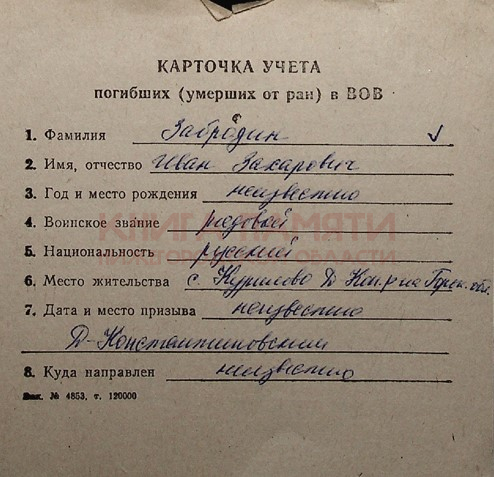 КАРТОЧКА УЧЕТА
погибших (умерших от ран) в ВОВ
1. Фамилия Забродин
2. Имя, отчество Иван Захарович
3. Год и место рождения неизвестно
4. Воинское звание рядовой
КНИГА ПАМЯТИ
5. Национальность русский
6. Место жительства с. Курилово Д Кон. р-на Горьк. обл.
7. Дата и место призыва неизвестно
Д-Константиновский
8. Куда направлен неизвестно
Зак. № 4853, т. 120000